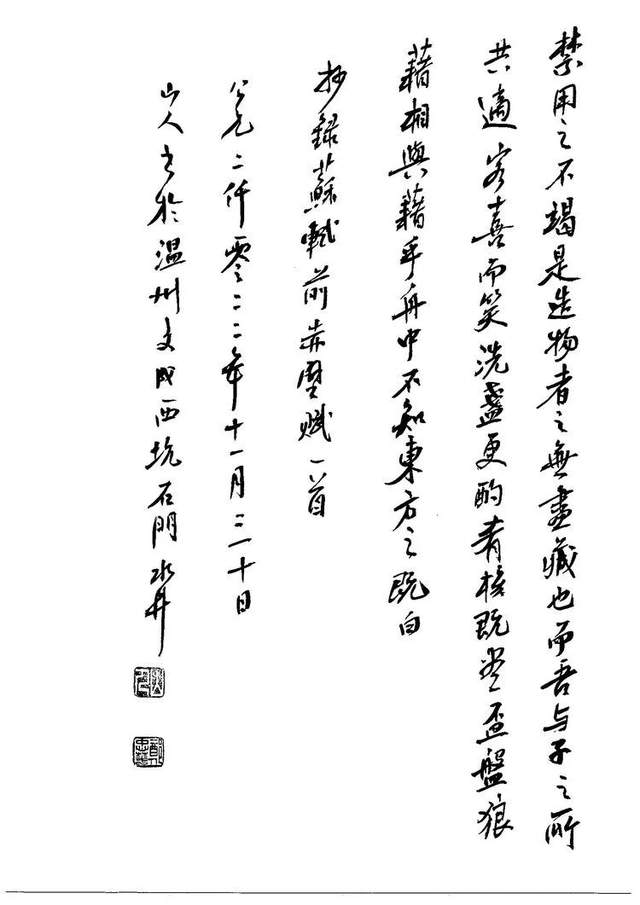 禁用之不竭是造物者之無盡藏也而吾与子之所
共適客喜而笑洗盞更酌肴核既盡盃盤狼
藉相與藉乎舟中不知東方之既白
抄録蘇軾前赤壁賦一首
公元二仟零二二年十一月三十日
山人书於温州文成西坑石門水井